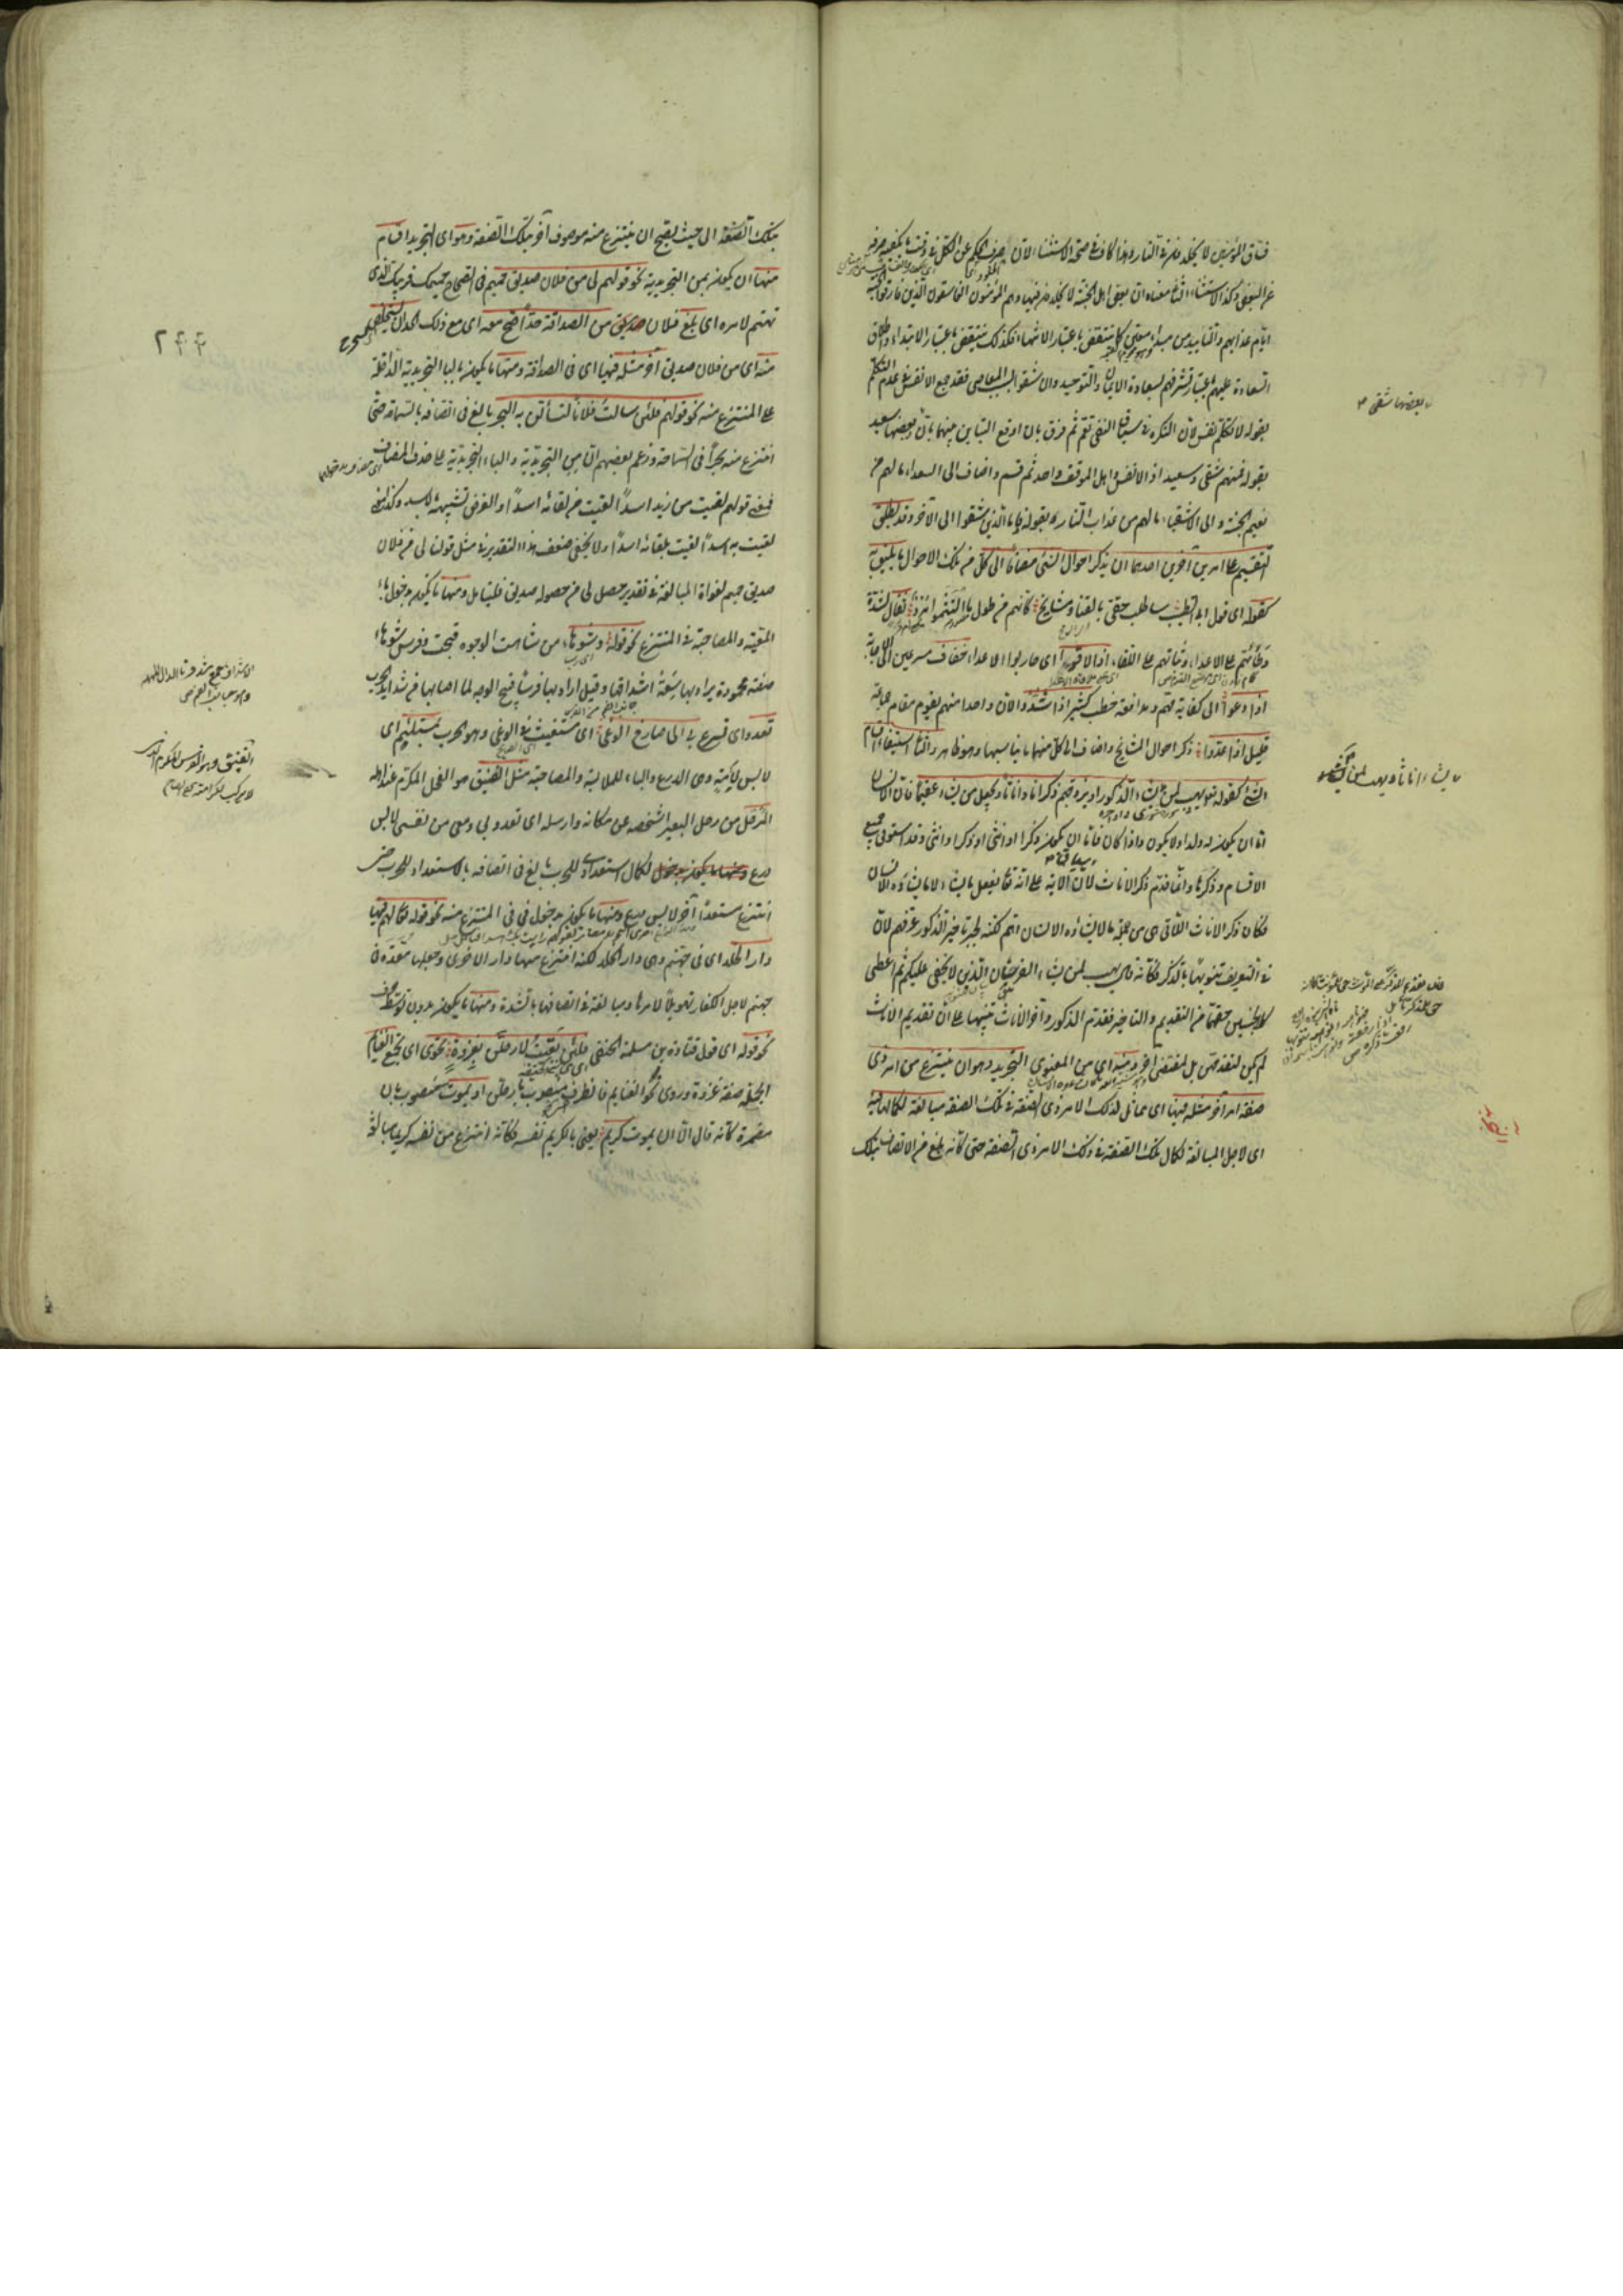 فساق المؤمنين لا يخلدون في النار وهذا كاف في صحة الاستثناء لان صرف الحكم عن الكل في وقت ما يكفيه صرفه
عن البعض وكذا الاستثناء الثاني معناه ان بعض اهل الجنة لا يخلدون فيها وهم المؤمنون الفاسقون الذين فارقوا الجنة
ايام عذابهم والتأبيد من مبدأ معين كما ينتقض باعتبار الانتهاء فكذلك ينتقض باعتبار الابتداء واطلاق
السعادة عليهم باعتبار تشرفهم بسعادة الايمان والتوحيد وان شقوا بسبب المعاصي فقد جمع الانفس في عدم التكلم
بقوله لا تكلم نفس لان النكرة في سياق النفي تعم ثم فرق بان اوقع التباين بينهما بان بعضها سعيد
بعضها شقي
بقوله فمنهم شقي وسعيد اذ الانفس واهل الموقف واحد ثم قسم واضاف الى السعداء ما لهم من
نعيم الجنة والى الاشقياء ما لهم من عذاب النار بقوله فاما الذين شقوا الى الآخر وقد يطلق
التقسيم على امرين آخرين احدهما ان يذكر احوال الشيء مضافا الى كل من تلك الاحوال ما يليق به
كقوله اي قول ابي الطيب ساطلب حقي بالقنا ومشايخ كانهم من طول ما التثموا مرد ثقال لشدة
وطأتهم على الاعداء وثباتهم على اللقاء اذا لاقوا اي حاربوا الاعداء خفاف مسرعين الى الاجابة
اذا دعوا الى كفاية مهم ومدافعة خطب كثير اذا شدوا لان واحدا منهم يقوم مقام جماعة
قليل اذا عدوا ذكر احوال المشايخ واضاف الى كل منها ما يناسبها وهو ظاهر والثاني استيفاء اقسام
الشيء كقوله تعالى يهب لمن يشاء الذكور او يزوجهم ذكرانا واناثا ويجعل من يشاء عقيما فان الانسان
يشاء اناثا ويهب لمن يشاء
اما ان يكون له ولد او لا يكون واذا كان فاما ان يكون ذكرا او انثى او ذكرا وانثى وقد استوفى جميع
الاقسام وذكرها وانما قدم ذكر الاناث لان سياق الآية على انه تعالى يفعل ما يشاء لا ما يشاؤه الانسان
فكان ذكر الاناث اللاتي هي من جملة ما لا يشاؤه الانسان اهم لكنه لجبر تأخير الذكور عرفهم لان
في التعريف تنويها بالذكر فكأنه قال يهب لمن يشاء الفرسان الذين لا يخفى عليكم ثم اعطى
كلا الجنسين حقهما من التقديم والتأخير فقدم الذكور وآخر الاناث تنبيها على ان تقديم الاناث
لم يكن لتقدمهن بل لمقتض آخر ومنه اي من المعنوي التجريد وهو ان ينتزع من امر ذي
صفة امر آخر مثله فيها اي مماثل لذلك الامر ذي الصفة في تلك الصفة مبالغة لكمالها فيه
اي لاجل المبالغة لكمال تلك الصفة في ذلك الامر ذي الصفة حتى كانه بلغ من الاتصاف بتلك
بتلك الصفة الى حيث يصح ان ينتزع منه موصوف آخر بتلك الصفة وهو اي التجريد اقسام
منها ان يكون بمن التجريدية نحو قولهم لي من فلان صديق حميم في الصحاح حميمك قريبك الذي
تهتم لامره اي بلغ فلان من الصداقة حدا صح معه اي مع ذلك الحد ان يستخلص
٢٤٤
منه اي من فلان صديق آخر مثله فيها اي في الصداقة ومنها ما يكون بالباء التجريدية الداخلة
على المنتزع منه نحو قولهم لئن سالت فلانا لتسألن به البحر بالغ في اتصافه بالسماحة حتى
انتزع منه بحرا في السماحة وزعم بعضهم ان من التجريدية والباء التجريدية على حذف المضاف
فمعنى قولهم لقيت من زيد اسدا لقيت من لقائه اسدا والغرض تشبيهه بالاسد وكذا معنى
لقيت به اسدا لقيت بلقائه اسدا ولا يخفى ضعف هذا التقدير في مثل قولنا لي من فلان
صديق حميم لفوات المبالغة في تقدير حصل لي من حصوله صديق فليتأمل ومنها ما يكون بدخول باء
المعية والمصاحبة في المنتزع نحو قوله وشوهاء من شاهت الوجوه قبحت وفرس شوهاء
صفة محمودة يراد بها سعة اشداقها وقيل اراد بها فرسا قبيح الوجه لما اصابها من شدائد الحرب
تعدو اي تسرع بي الى صارخ الوغى اي مستغيث في الوغى وهو الحرب بمستلئم اي
لابس لأمة وهي الدرع والباء للملابسة والمصاحبة مثل الفنيق هو الفحل المكرم عند اهله
المرحل من رحل البعير اشخصه عن مكانه وارسله اي تعدو بي ومعي من نفسي لابس
درع لكمال استعدادي للحرب بالغ في اتصافه بالاستعداد للحرب حتى
انتزع مستعدا آخر لابس درع ومنها ما يكون بدخول في في المنتزع منه نحو قوله تعالى لهم فيها
دار الخلد اي في جهنم وهي دار الخلد لكنه انتزع منها دارا اخرى وجعلها معدة في
جهنم لاجل الكفار تهويلا لامرها ومبالغة في اتصافها بالشدة ومنها ما يكون بدون توسط حرف
نحو قوله اي قول قتادة بن مسلمة الحنفي فلئن بقيت لارحلن بغزوة تحوي اي تجمع الغنائم
الجملة صفة غزوة وروي نحو الغنائم فالظرف منصوب بارحلن او يموت منصوب بان
مضمرة كانه قال الا ان يموت كريم يعني بالكريم نفسه فكانه انتزع من نفسه كريما مبالغة